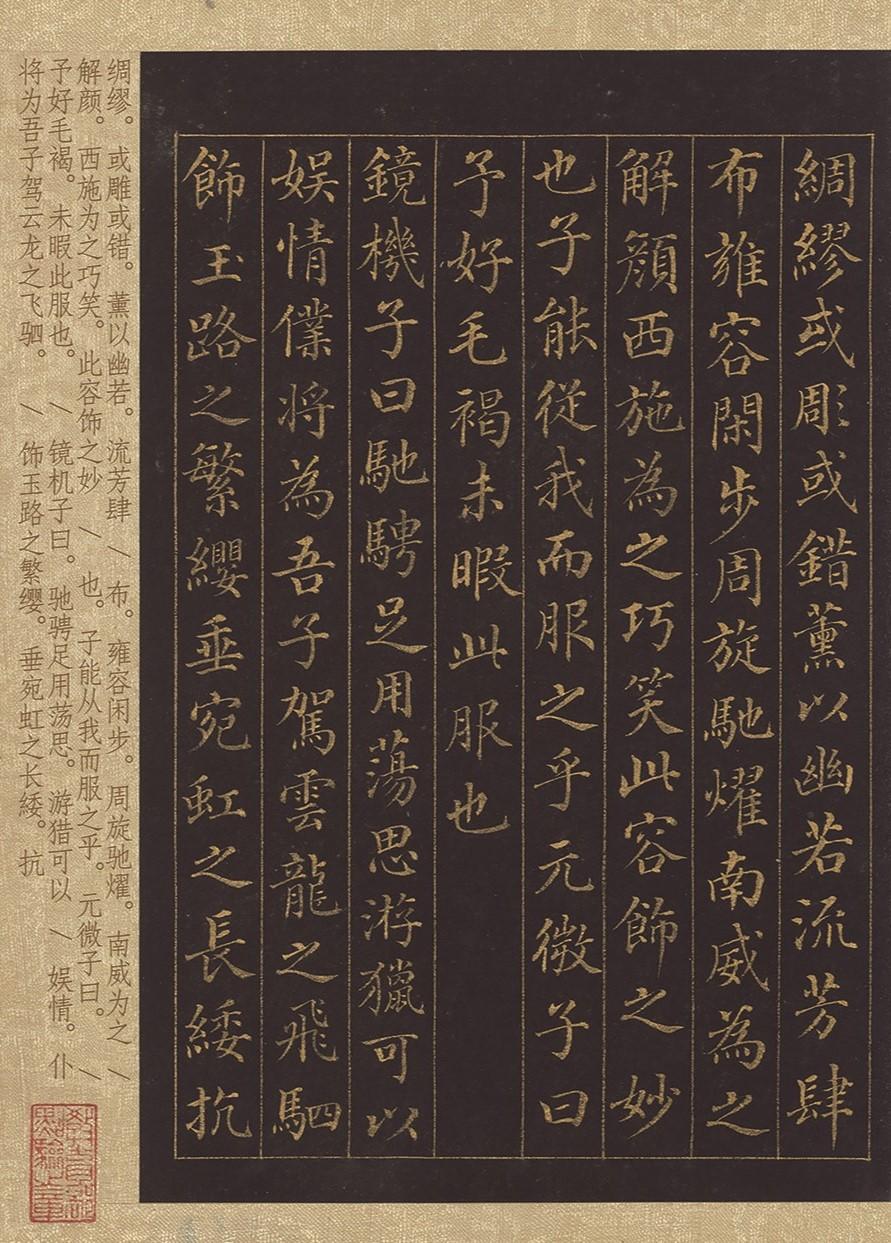 綢繆或彫或錯薰以幽若流芳肆
布雍容閑步周旋馳燿南威為之
解顏西施為之巧笑此容飾之妙
也子能從我而服之乎元微子曰
予好毛褐未暇此服也
鏡機子曰馳騁足用蕩思游獵可以
娛情僕将為吾子駕雲龍之飛駟
飾玉路之繁纓垂宛虹之長緌抗
绸缪。或雕或错。薰以幽若。流芳肆 / 布。雍容闲步。周旋驰燿。南威为之 /
解颜。西施为之巧笑。此容饰之妙 / 也。子能从我而服之乎。元微子曰。 /
予好毛褐。未暇此服也。 / 镜机子曰。驰骋足用荡思。游猎可以 / 娱情。仆
将为吾子驾云龙之飞驷。 / 饰玉路之繁缨。垂宛虹之长緌。抗